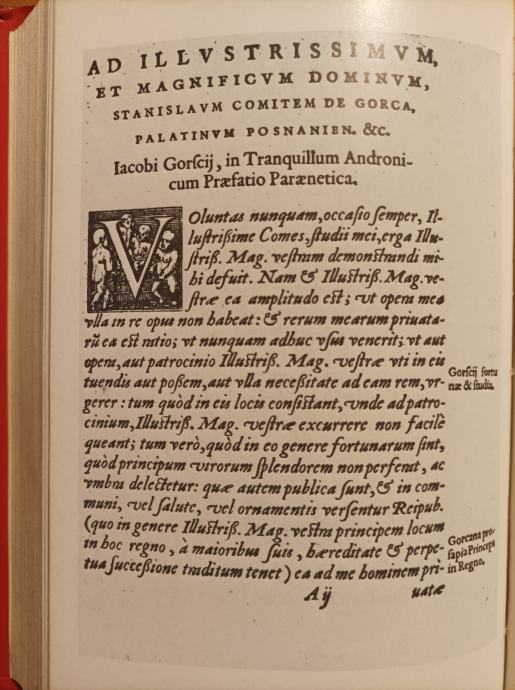 AD ILLVSTRISSIMVM,
ET MAGNIFICVM DOMINVM,
STANISLAVM COMITEM DE GORCA,
PALATINVM POSNANIEN. &c.
Iacobi Gorſcij, in Tranquillum Androni-
cum Præfatio Parænetica.
VOluntas nunquam, occaſio ſemper, Il-
luſtriſsime Comes, ſtudii mei, erga Illu-
ſtriſs. Mag. veſtram demonſtrandi mi-
hi defuit. Nam & Illuſtriſs. Mag. ve-
ſtræ ea amplitudo eſt; vt opera mea
vlla in re opus non habeat: & rerum mearum priuata-
rũ ea est ratio; vt nunquam adhuc vſus venerit; vt aut
opera, aut patrocinio Illuſtriſs. Mag. veſtræ vti in eis
tuendis aut poſſem, aut vlla neceſsitate ad eam rem, vr-
gerer: tum quòd in eis locis conſiſtant, vnde ad patro-
cinium, Illuſtriſs. Mag. veſtræ excurrere non facilè
queant; tum verò, quòd in eo genere fortunarum ſint,
quòd principum virorum ſplendorem non ferat, ac
vmbra delectetur: quæ autem publica ſunt, & in com-
muni, vel ſalute, vel ornamentis verſentur Reipub.
(quo in genere Illuſtriſs. Mag. veſtra principem locum
in hoc regno, à maioribus ſuis, hæreditate & perpe-
tua ſucceſsione traditum tenet) ea ad me hominem pri-
A ij uatæ
Gorſcij fortu
næ & ſtudia.
Gorcana pro-
ſapia Princeps
in Regno.